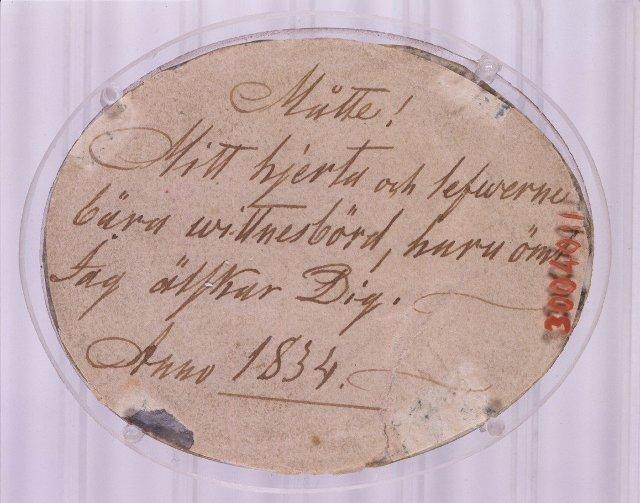 Måtte!
Mitt hjerta och lefwerne
bära wittnesbörd, huru ömt
Jag älskar Dig.
Anno 1834.
3004011